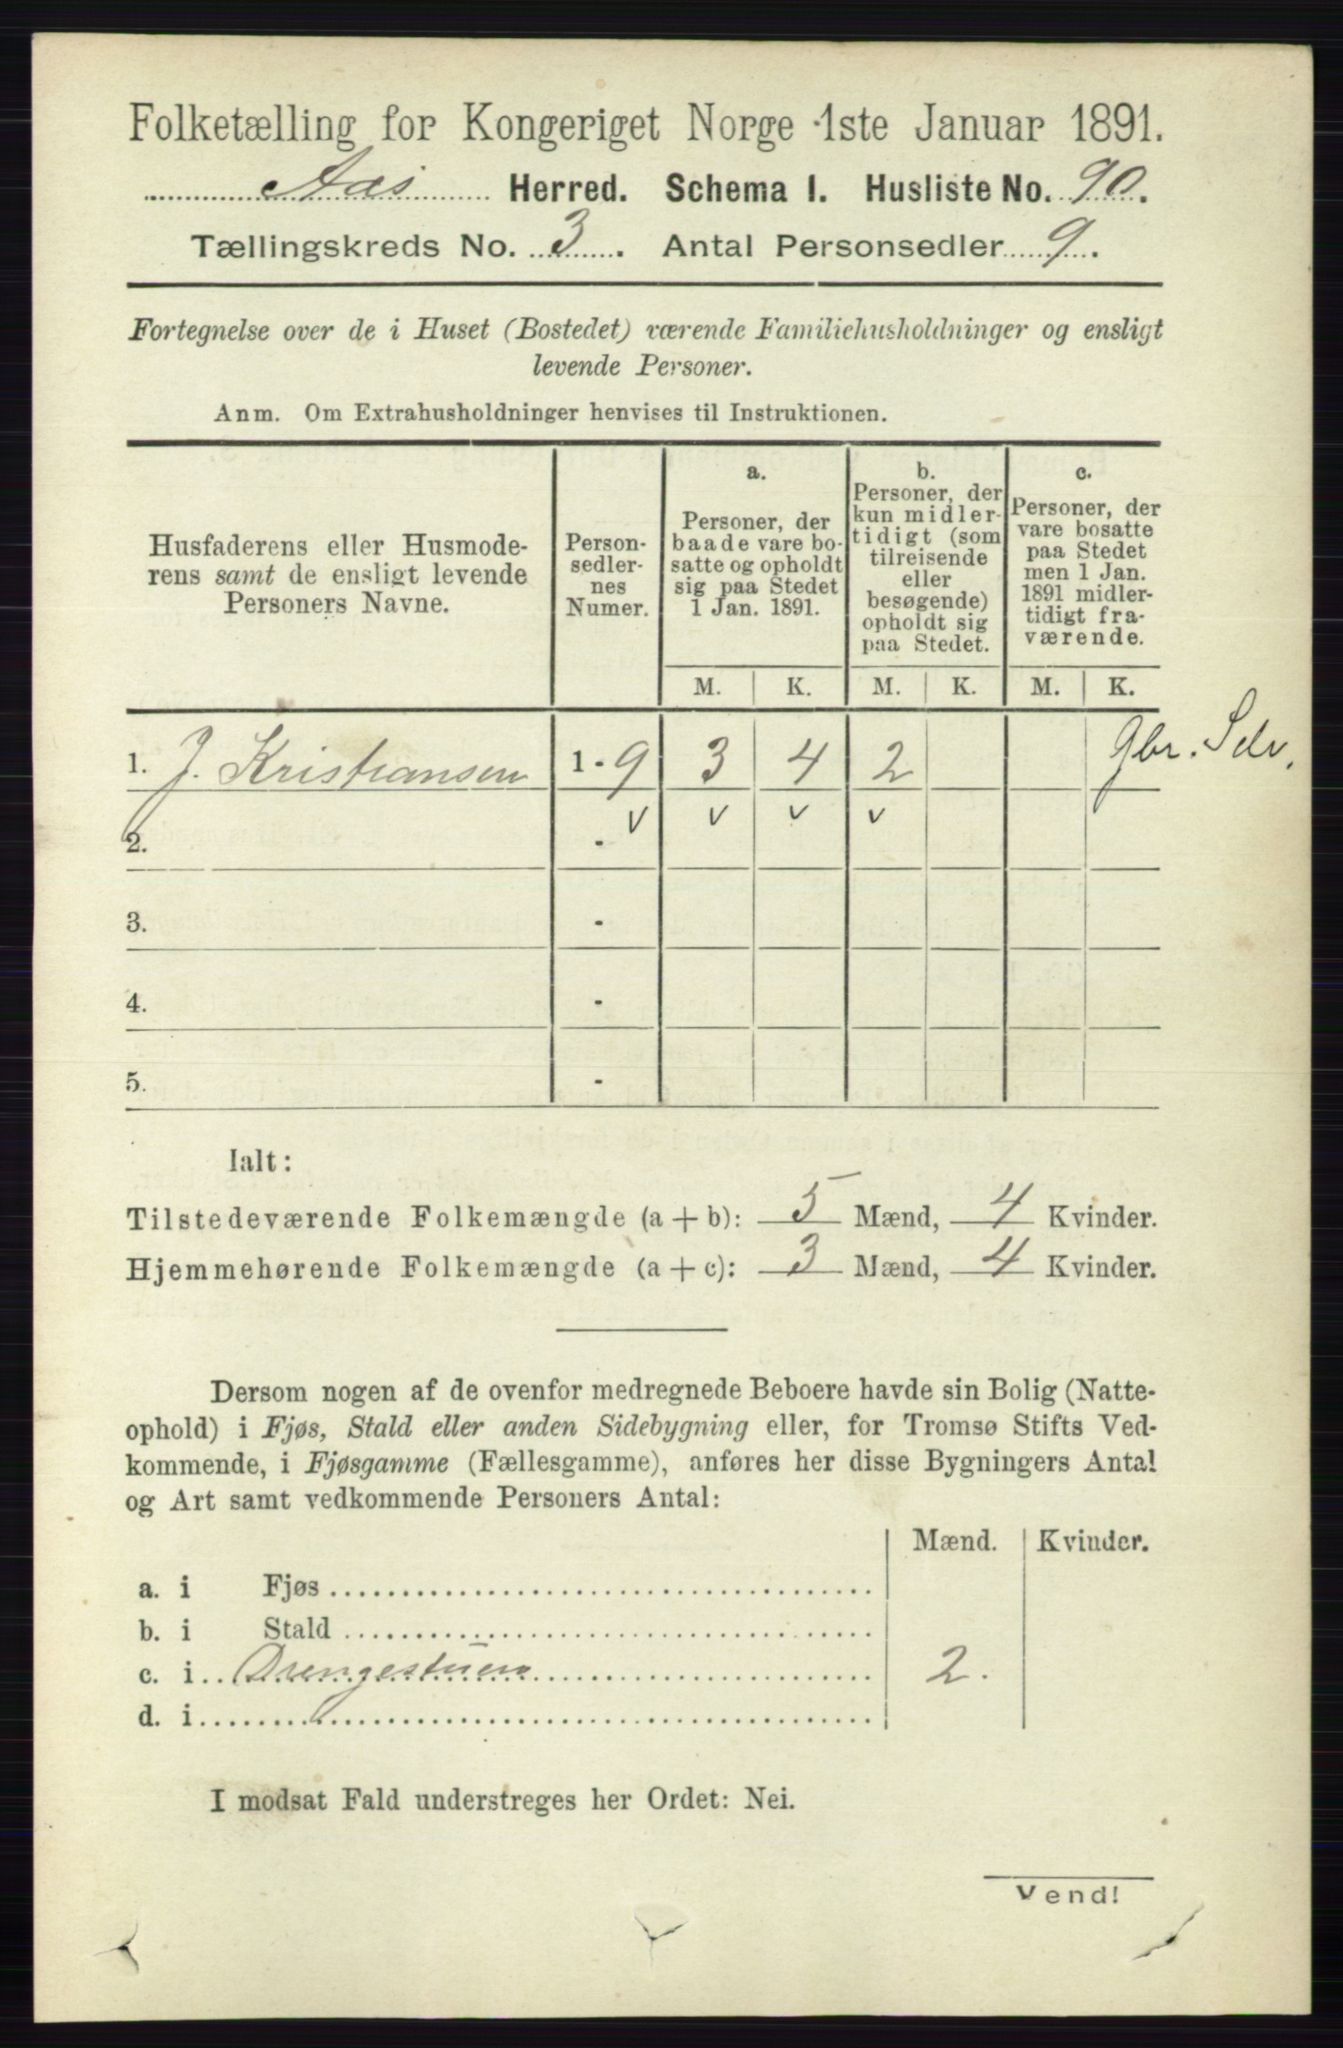 Folketælling for Kongeriget Norge 1ste Januar 1891.
Aas Herred. Schema I. Husliste No. 90.
Tællingskreds No. 3. Antal Personsedler 9.
Fortegnelse over de i Huset (Bostedet) værende Familiehusholdninger og ensligt
levende Personer.
Anm. Om Extrahusholdninger henvises til Instruktionen.
Husfaderens eller Husmode-
rens samt de ensligt levende
Personers Navne.
Person-
sedler-
nes
Numer.
a.
Personer, der
baade vare bo-
satte og opholdt
sig paa Stedet
1 Jan. 1891.
b.
Personer, der
kun midler-
tidigt (som
tilreisende
eller
besøgende)
opholdt sig
paa Stedet.
c.
Personer, der
vare bosatte
paa Stedet
men 1 Jan.
1891 midler-
tidigt fra-
værende.
M. K. M. K. M. K.
1. J. Kristiansen 1 - 9 3 4 2 Gbr. Selv.
v v v v
2. -
3. -
4. -
5. -
Ialt:
Tilstedeværende Folkemængde (a + b): 5 Mænd, 4 Kvinder.
Hjemmehørende Folkemængde (a + c): 3 Mænd, 4 Kvinder.
Dersom nogen af de ovenfor medregnede Beboere havde sin Bolig (Natte-
ophold) i Fjøs, Stald eller anden Sidebygning eller, for Tromsø Stifts Ved-
kommende, i Fjøsgamme (Fællesgamme), anføres her disse Bygningers Antal
og Art samt vedkommende Personers Antal:
Mænd. Kvinder.
a. i Fjøs
b. i Stald
c. i Drengestuen 2.
d. i
I modsat Fald understreges her Ordet: Nei.
Vend!